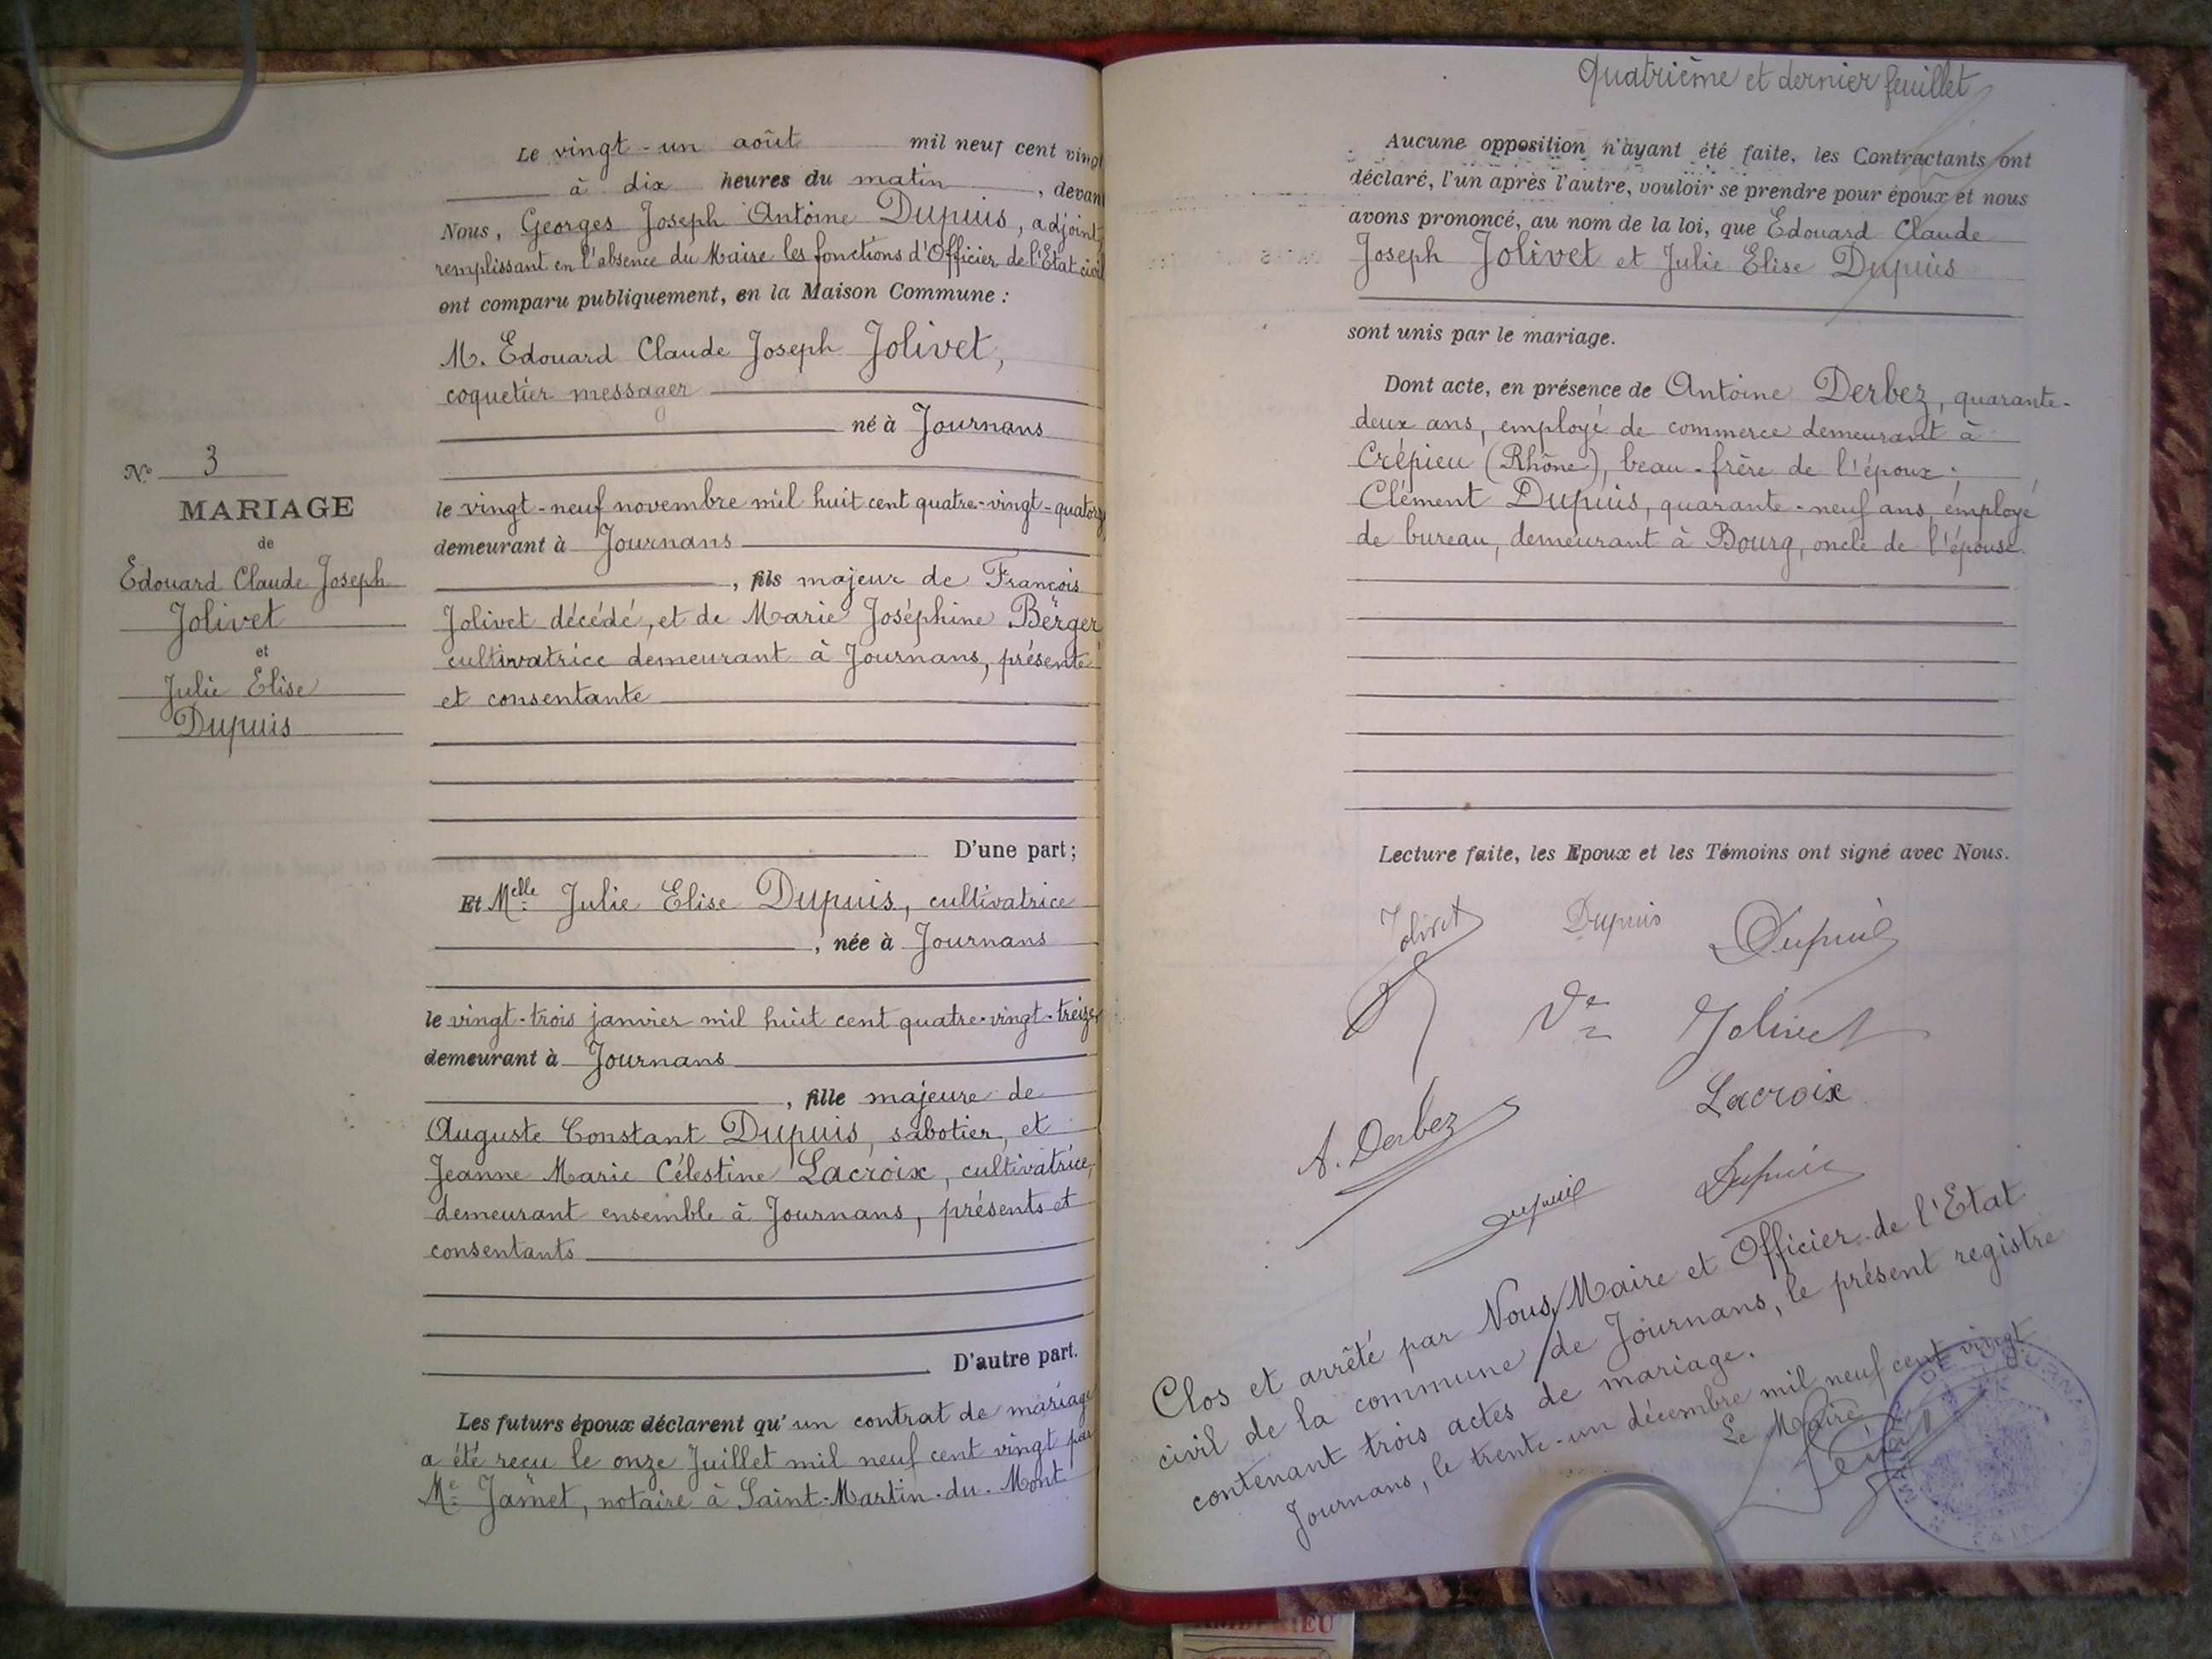 Le vingt-un août mil neuf cent vingt
à dix heures du matin, devant
Nous, Georges Joseph Antoine Dupuis, adjoint,
remplissant en l'absence du Maire les fonctions d'Officier de l'Etat civil
ont comparu publiquement, en la Maison Commune :
M. Edouard Claude Joseph Jolivet,
coquetier messager
né à Journans
le vingt-neuf novembre mil huit cent quatre-vingt-quatorze
demeurant à Journans
, fils majeur de François
Jolivet décédé, et de Marie Joséphine Berger
cultivatrice demeurant à Journans, présente
et consentante
D'une part ;
Et Melle Julie Elise Dupuis, cultivatrice
, née à Journans
le vingt-trois janvier mil huit cent quatre-vingt-treize
demeurant à Journans
, fille majeure de
Auguste Constant Dupuis, sabotier, et
Jeanne Marie Célestine Lacroix, cultivatrice,
demeurant ensemble à Journans, présents et
consentants
D'autre part.
Les futurs époux déclarent qu'un contrat de mariage
a été reçu le onze Juillet mil neuf cent vingt par
Me Jamet, notaire à Saint-Martin-du-Mont
No 3
MARIAGE
de
Edouard Claude Joseph
Jolivet
et
Julie Elise
Dupuis
Quatrième et dernier feuillet
Aucune opposition n'ayant été faite, les Contractants ont
déclaré, l'un après l'autre, vouloir se prendre pour époux et nous
avons prononcé, au nom de la loi, que Edouard Claude
Joseph Jolivet et Julie Elise Dupuis
sont unis par le mariage.
Dont acte, en présence de Antoine Derbez, quarante-
deux ans, employé de commerce demeurant à
Crépieu (Rhône), beau-frère de l'époux ;
Clément Dupuis, quarante-neuf ans, employé
de bureau, demeurant à Bourg, oncle de l'épouse.
Lecture faite, les Epoux et les Témoins ont signé avec Nous.
Jolivet Dupuis Dupuis
Ve Jolivet
Lacroix
A. Derbez
Dupuis Dupuis
Clos et arrêté par Nous, Maire et Officier de l'Etat
civil de la commune de Journans, le présent registre
contenant trois actes de mariage.
Journans, le trente-un décembre mil neuf cent vingt
Le Maire